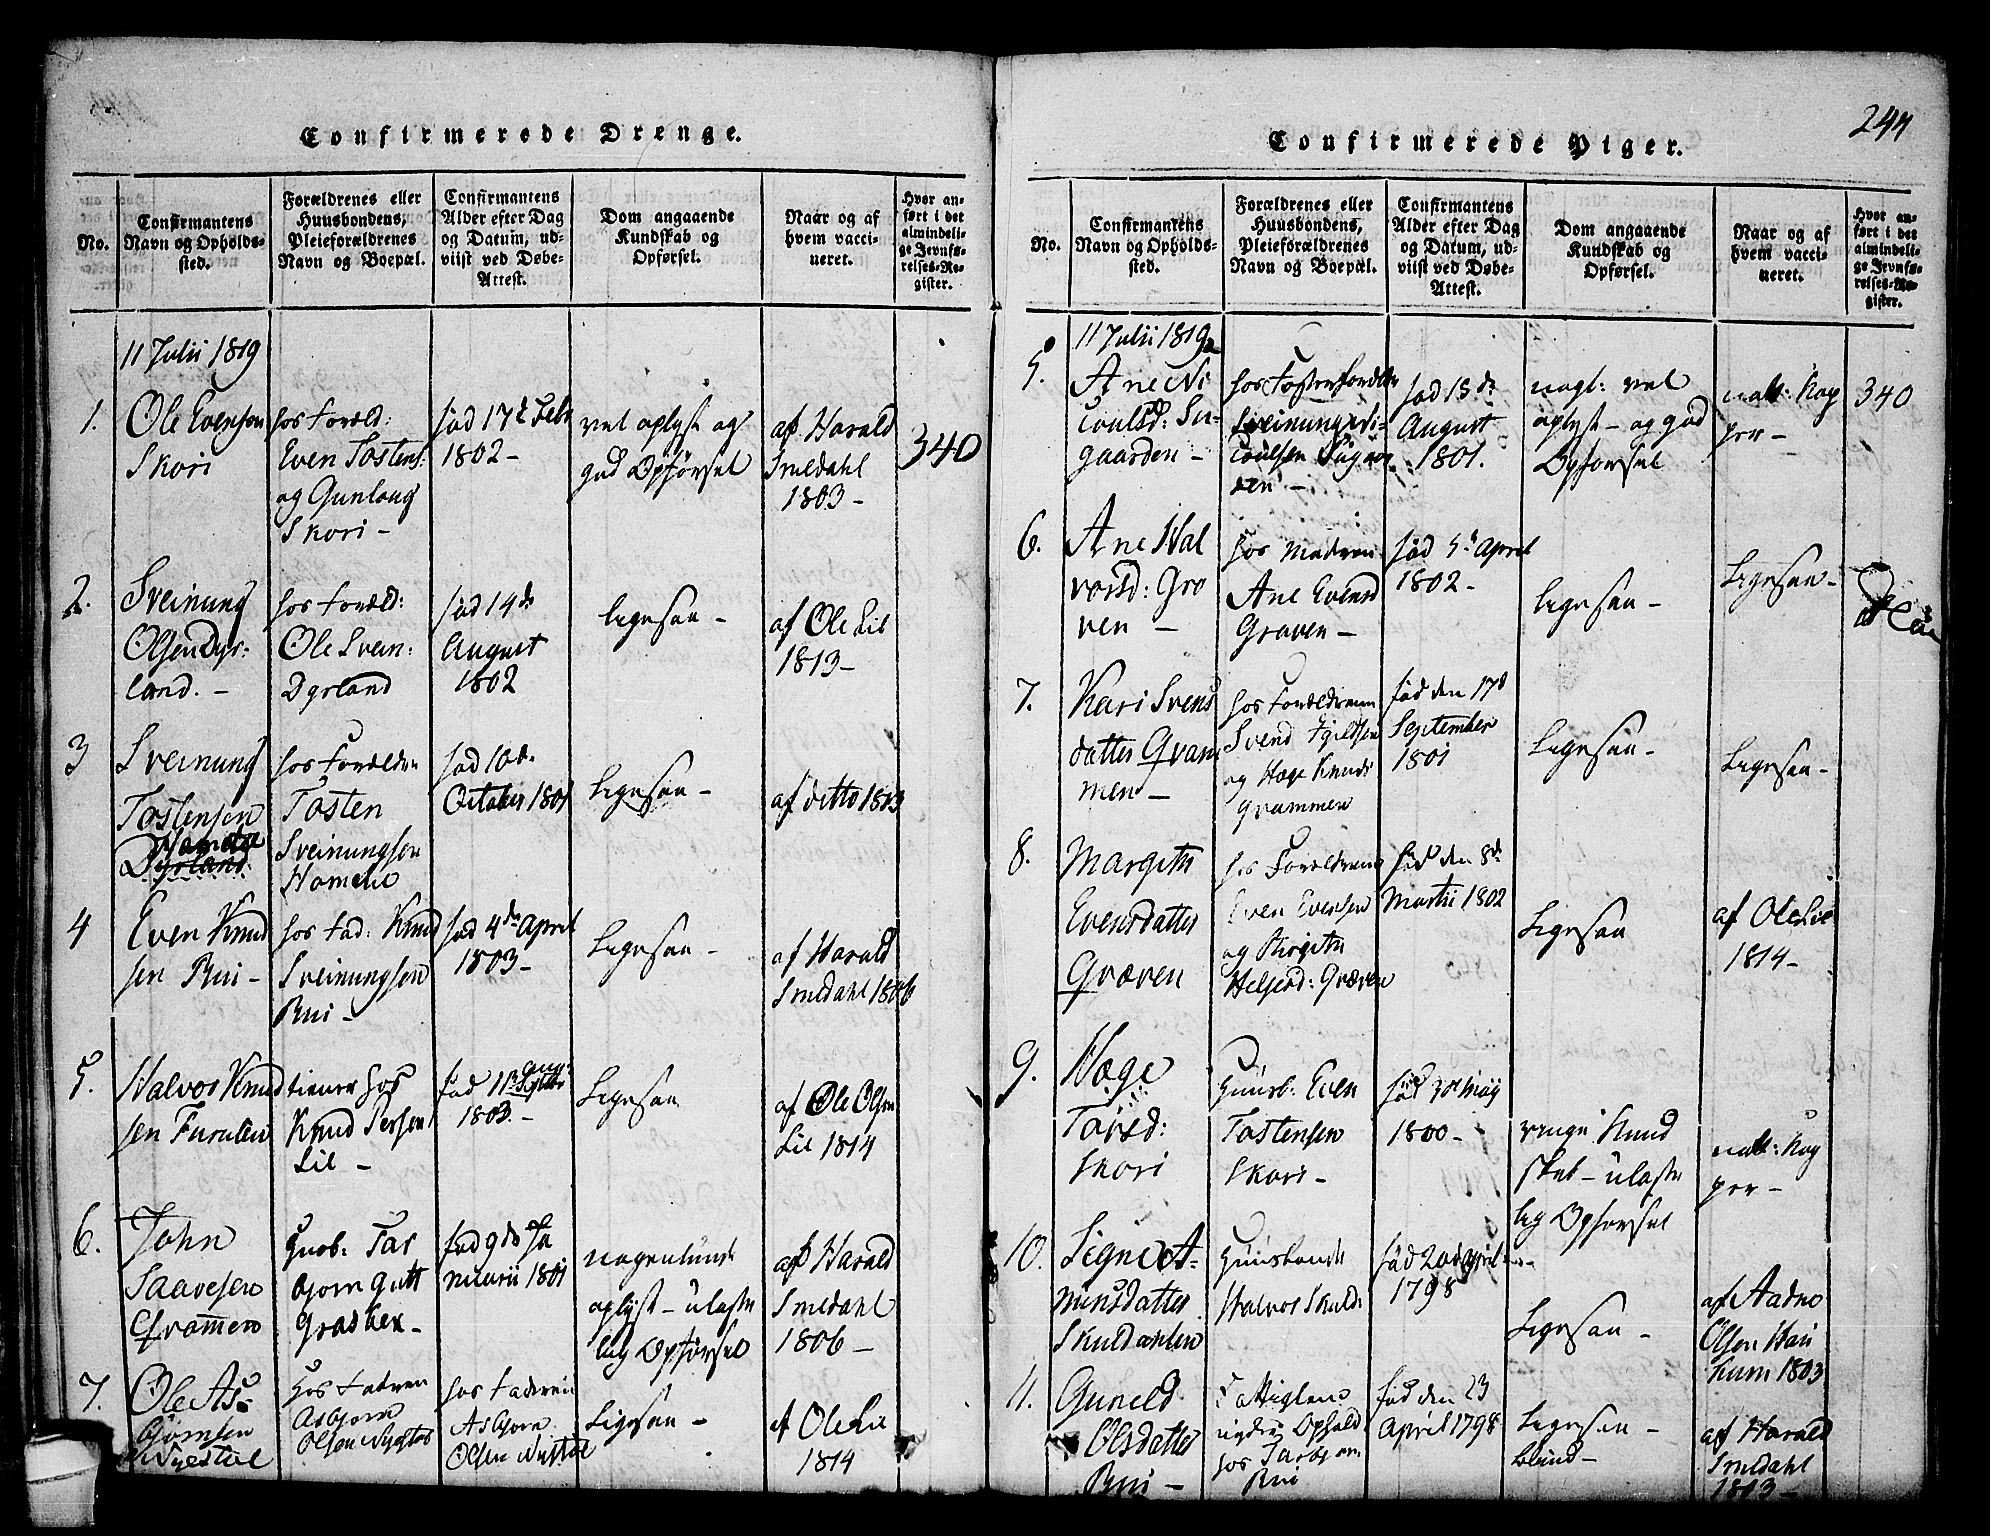 244
Confirmerede Drenge.
No.
Confirmantens
Navn og Opholds-
sted.
Forældrenes eller
Huusbondens,
Pleieforældrenes
Navn og Boepæl.
Confirmantens
Alder efter Dag
og Datum, ud-
viist ved Døbe-
Attest.
Dom angaaende
Kundskab og
Opførsel.
Naar og af
hvem vacci-
neret.
Hvor an-
ført i det
almindeli-
ge Jevnfø-
relses-Re-
gister.
11 Julii 1819
1.
Ole Evensen
Skori
hos Foræld:
Even Tostens:
og Gunloug
Skori -
fød 17de Febr
1802 -
vel oplyst og
god Opførsel
af Harald
Smedahl
1803 -
340
2.
Sveinung
Olsen Dyr-
land. -
hos Foræld:
Ole Svein:
Dyrland
fød 14de
August
1802
ligesaa -
af Ole Lie
1813 -
3
Sveinung
Tostensen
Dyrland
hos Forældre
Tosten
Sveinungsen
fød 10de
October 1801
Ligesaa -
af ditto 1813
4
Even Knud
sen Rui -
hos Fad: Knud
Sveinungsen
Rui -
fød 4de April
1803 -
Ligesaa -
af Harald
Smedahl 1806
5.
Halvor Knud
sen
tiener hos
Knud
Lil -
fød 11te
1803 -
Ligesaa
af Ole Olsen
Lil 1814
6.
John
Saavesen
Grammen
Huusb: Tar
bjorn Gutt
Grasbek -
fød 9de Ja
nuarii 1801
nogenlunde
oplyst - ulaste
lig Opførsel
af Harald
Smedahl
1806 -
7.
Ole As-
biornsen
Nystøl
Hos Faderen
Asbjorn
Olsen
hos Faderen
Asbjorn
Olsen Nystøl
Ligesaa -
af Ole Lie
1814
Confirmerede Piger.
No.
Confirmantens
Navn og Opholds-
sted.
Forældrenes eller
Huusbondens,
Pleieforældrenes
Navn og Boepæl.
Confirmantens
Alder efter Dag
og Datum, ud-
viist ved Døbe-
Attest.
Dom angaaende
Kundskab og
Opførsel.
Naar og af
hvem vacci-
neret.
Hvor an-
ført i det
almindeli-
ge Jevnfø-
relses-Re-
gister.
11 Julii 1819
5.
Ane Ni
coulsd: Su-
gaarden -
hos Fosterforældre
Sveinung Ni-
coulsen
fød 15de
August
1801.
nogl: vel
oplyst - og god
Opførsel
nat: Kop
per -
340
6.
Ane Hal
vorsd: Gro
ven -
hos Moderen
Ane Evensd
Graven -
fød 5te April
1802 -
ligesaa -
Ligesaa -
7.
Kari Svens
datter Gram
men -
hos Forældrene
Svend
og Hæge Knuds
Grammen
fød den 17de
September
1801
Ligesaa -
Ligesaa -
8.
Margith
Evensdatter
Græven
hos Forældrene
Even Evensen
og Birgith
Heljesd: Græven
fød den 8de
Martii 1802
Ligesaa
af Ole Lie
1814 -
9.
Hæge
Torsd:
Skori
Huusb: Even
Tostensen
Skori -
fød 30te May
1800 -
ringe Kund
skab - ulaste
lig Opførsel
nat: Kop
per -
10.
Signe A-
munsdatter
Skuldahlen
Huusbonde
Halvor
fød 20de April
1798
Ligesaa -
af Aadne
Olsen
1803
11.
Guneld
Olsdatter
Rui -
Fattiglem
nyder Ophold
hos Tarbjorn
Rui
fød den 23
April 1798
Ligesaa -
blind -
af Harald
Smedahl
1813 -